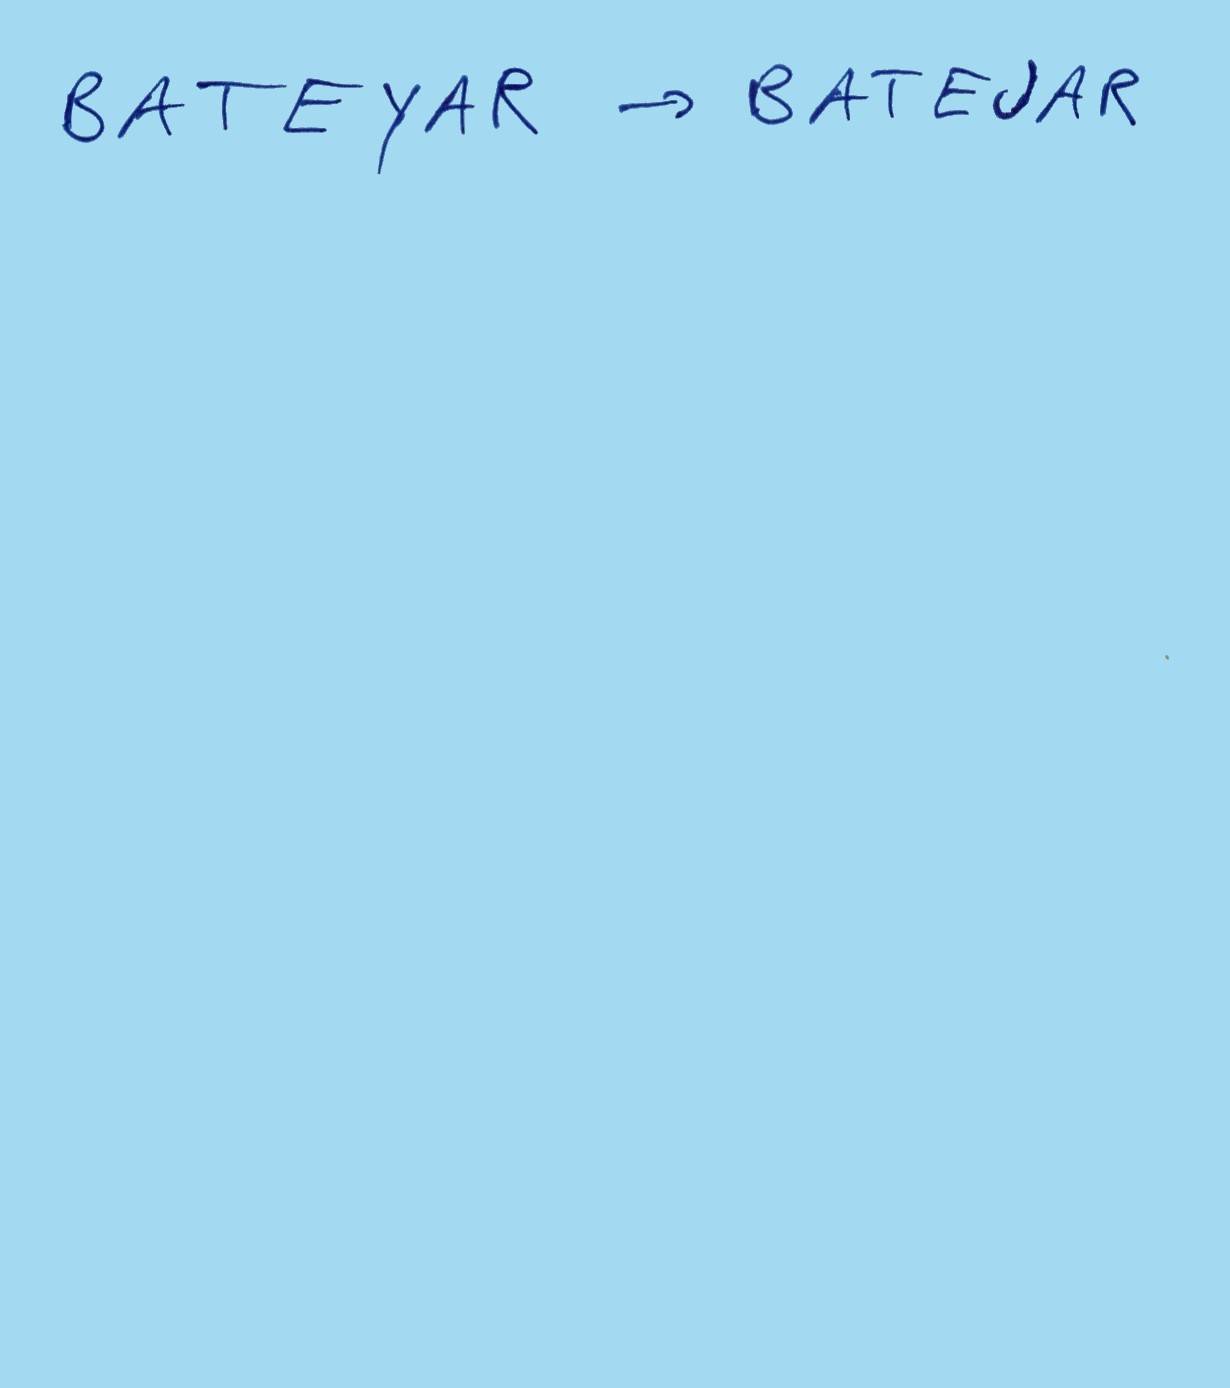 BATEYAR → BATEJAR